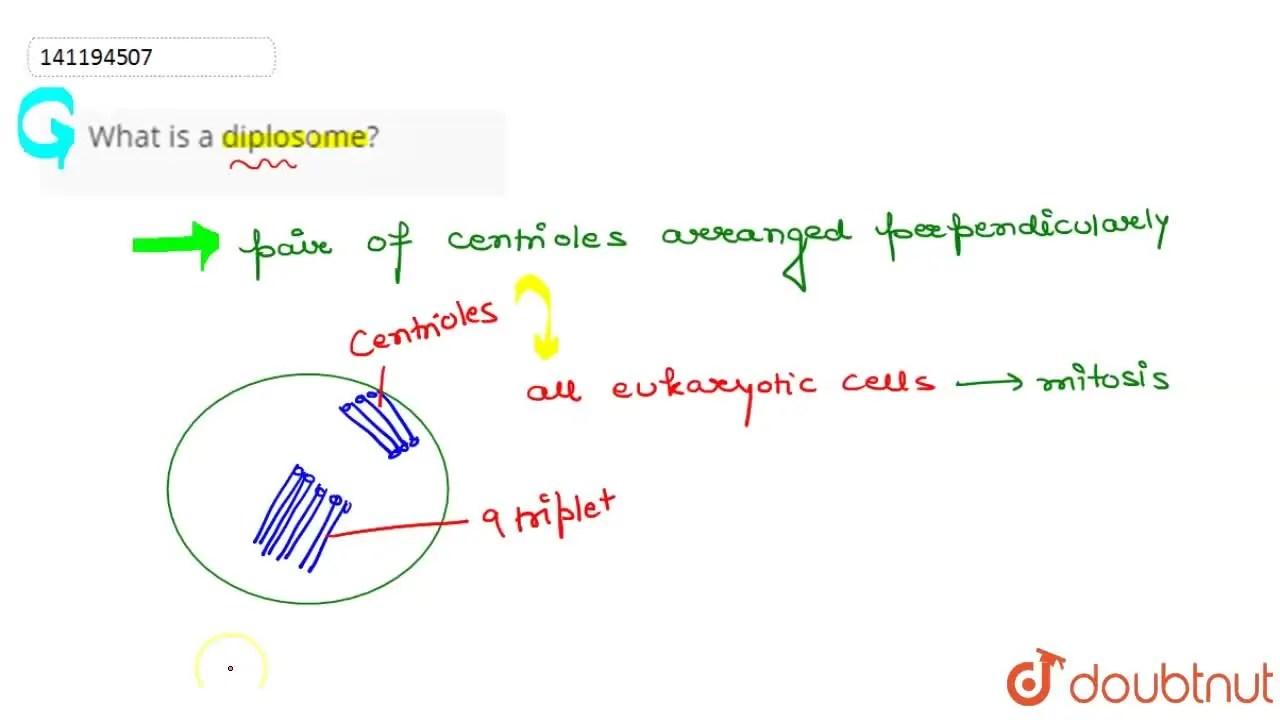 141194507
What is a diplosome?
pair of centrioles arranged perpendicularly
Centrioles
all eukaryotic cells → mitosis
9 triplet
doubtnut